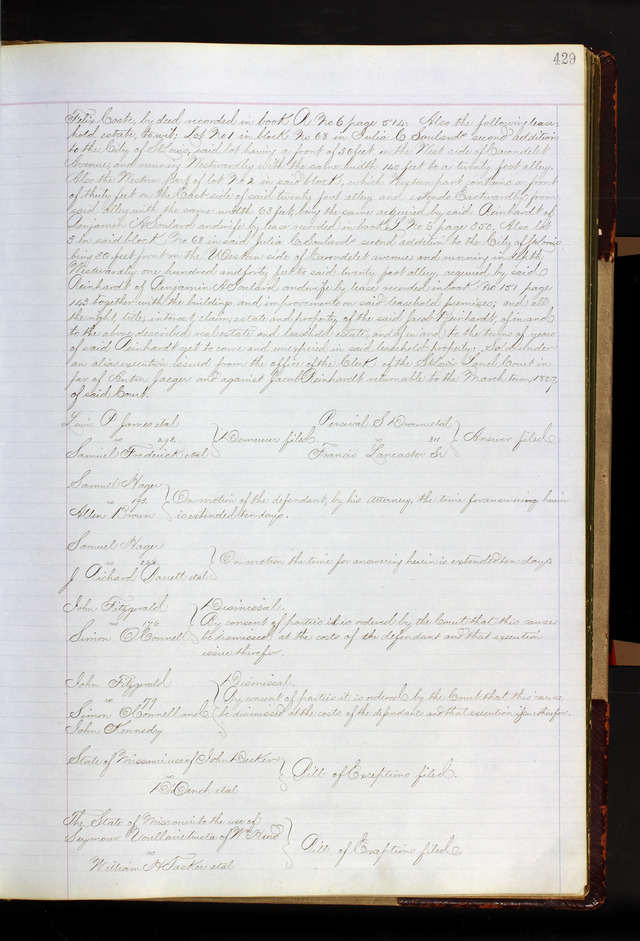 429
Felix Coste, by deed recorded in book A No 6 page 514. Also the following lease-
hold estate, to wit; Lot No 1 in block No 68 in Julia C. Soulards second addition
to the City of St Louis, said lot having a front of 30 feet on the West side of Carondelet
Avenue, and running Westwardly with the same width 140 feet to a twenty foot alley.
Also the Western part of lot No 2 in said block, which Western part contains a front
of thirty feet on the East side of said twenty foot alley, and extends Eastwardly from
said alley with the same width 63 feet, being the same acquired by said Reinhardt of
Benjamin A Soulard and wife by lease recorded in book No 6 page 350. Also lot
3 in said block No 68 in said Julia C Soulards second addition to the City of St Louis
being 30 feet front on the Western side of Carondelet avenue and running in depth
Westwardly one hundred and forty feet to said twenty foot alley, acquired by said
Reinhardt of Benjamin A Soulard and wife by lease recorded in book No 151 page
143 together with the buildings and improvements on said leasehold premises; and all
the right, title, interest, claim, estate and property of the said Jacob Reinhardt, of in and
to the above described real estate and leasehold estate, and of in and to the terms of years
of said Reinhardt yet to come and unexpired in said leasehold property; Sold under
an alias execution issued from the office of the Clerk of the St Louis Land Court in
favor of Anton Jaeger and against Jacob Reinhardt returnable to the March term, 1859
of said Court.
Lewis P James etal
vs 298.
Samuel Frederick etal
Demurrer filed.
Percival S Brown etal
vs 311
Francis Lancaster Sr
Answer filed
Samuel Hager
vs 193.
Allen Brown
On motion of the defendant, by his attorney, the time for answering herein
is extended ten days.
Samuel Hager
vs
J Richard Barrett etal
On motion the time for answering herein is extended ten days
John Fitzgerald
vs 176
Simon OConnell
Dismissal.
By consent of parties it is ordered by the Court that this cause
be dismissed at the costs of the defendant and that execution
issue therefor.
John Fitzgerald
vs 177
Simon OConnell and
John Kennedy
Dismissal.
By consent of parties it is ordered by the Court that this cause
be dismissed at the costs of the defendants and that execution issue therefor.
State of Missouri use of John Decker
vs
D Bench etal
Bill of Exceptions filed.
The State of Missouri to the use of
Seymour Voullaire trustee of Wm
vs
William H Tasker etal
Bill of Exceptions filed.